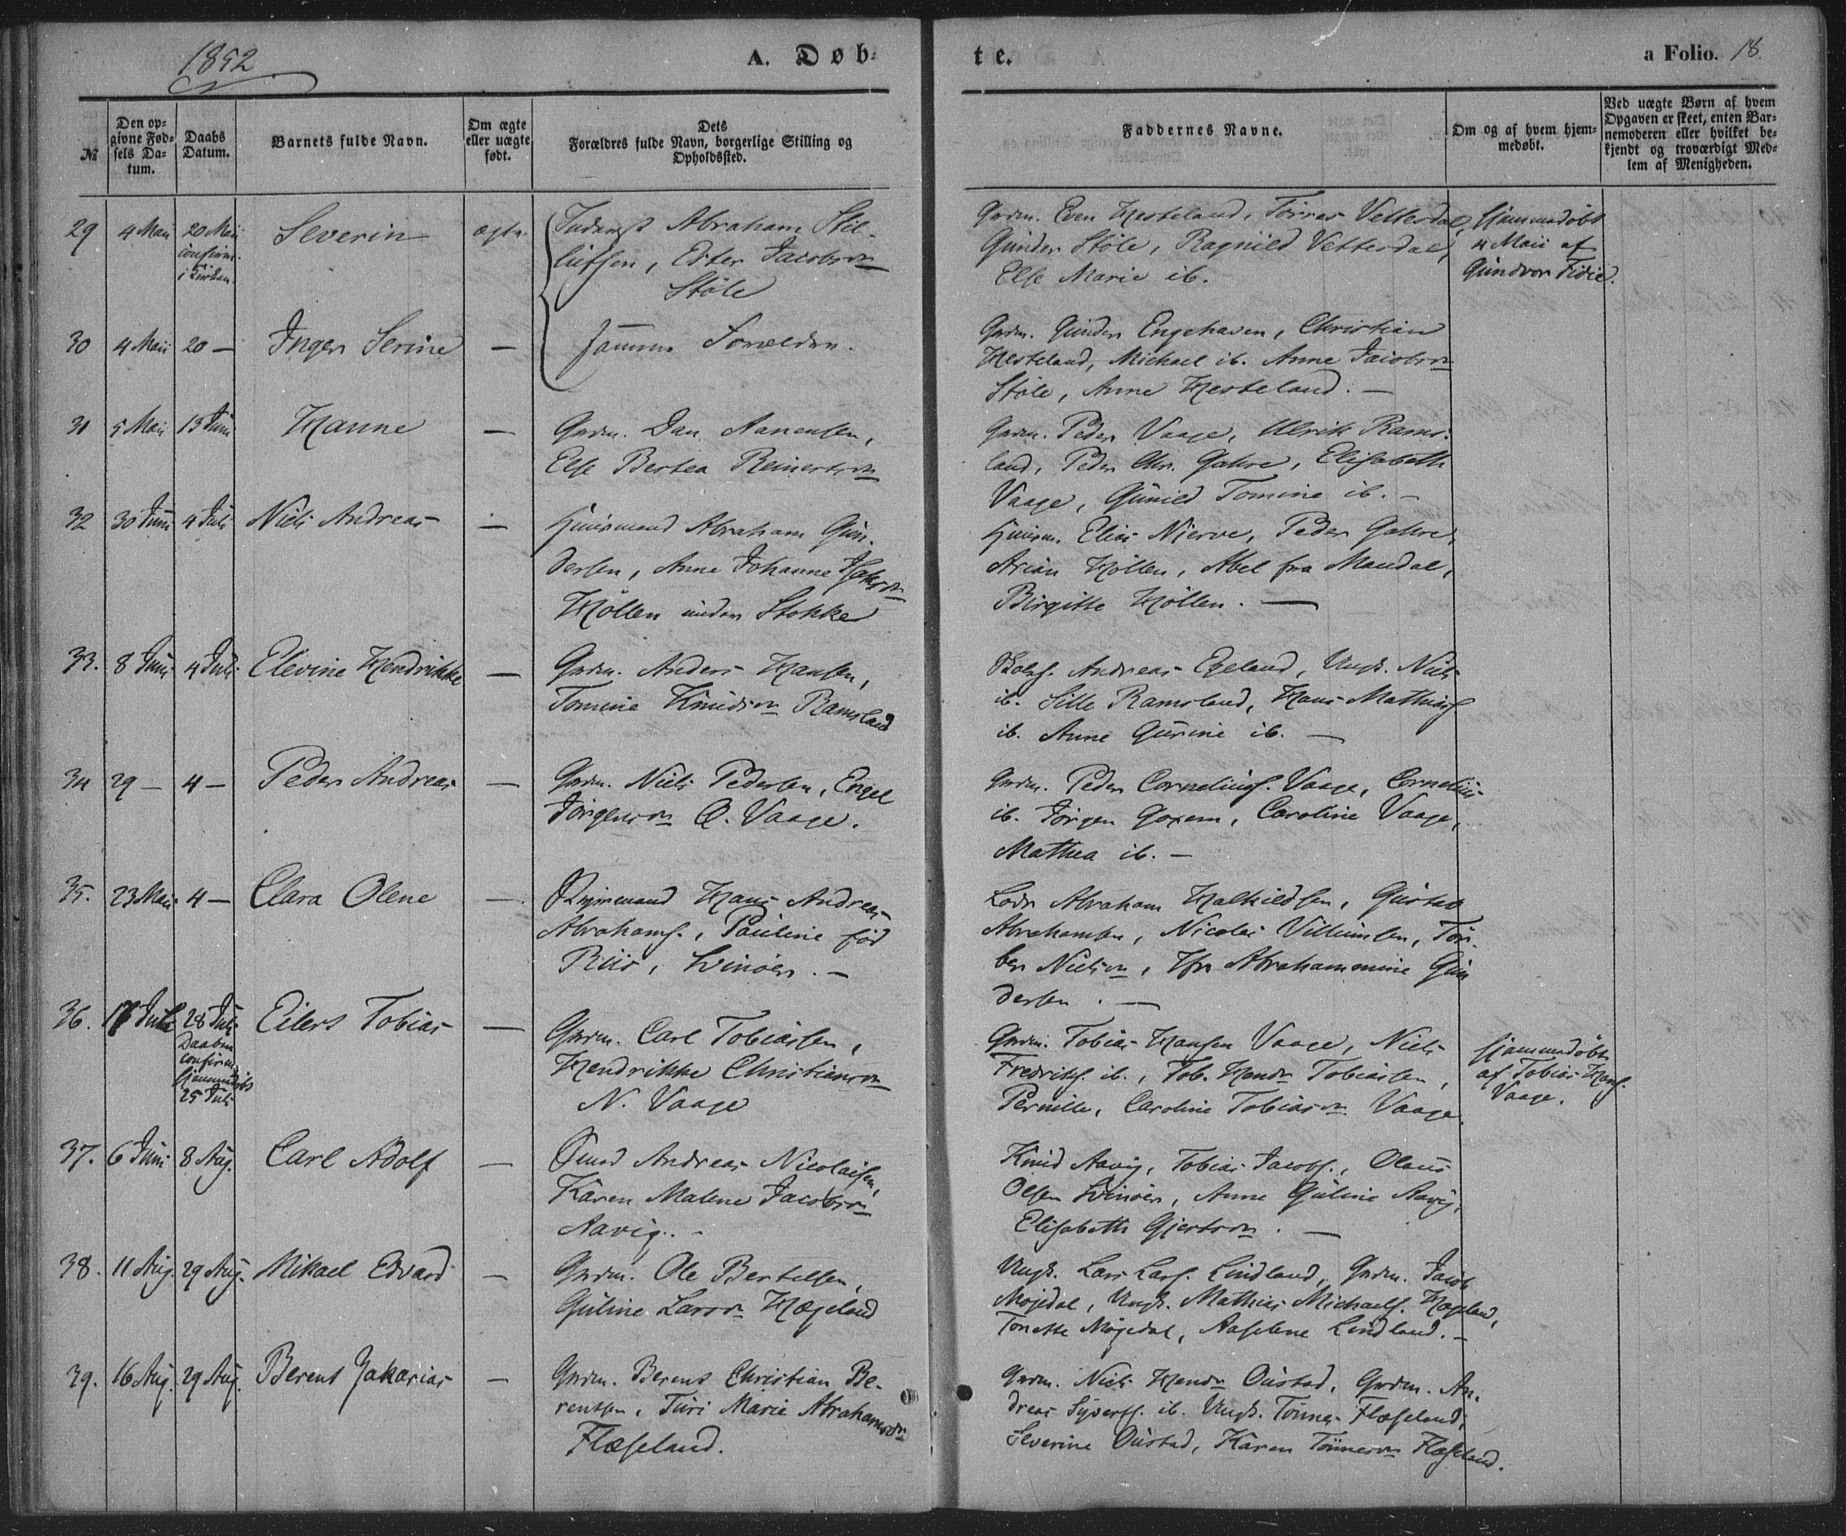 1852
A. Døb-
te.
a Folio. 18.
№
Den op-
givne Fød-
sels Da-
tum.
Daabs
Datum.
Barnets fulde Navn.
Om ægte
eller uægte
født.
Dets
Forældres fulde Navn, borgerlige Stilling og
Opholdssted.
Faddernes Navne.
Om og af hvem hjem-
medøbt.
Ved uægte Børn af hvem
Opgaven er skeet, enten Bar-
nemoderen eller hvilket be-
kjendt og troværdigt Med-
lem af Menigheden.
29 4 Mai 20 Mai Severin ægte Abraham Stil-
confirm.
i Kirken
Ester Jacobsdn
Støle
Grdm. Even Hesteland, Tørres Vetterdal,
Gunder Støle, Ragnild Vetterdal,
Else Marie ib.
hjemmedøbt
4 Mai af
Gundvor Fidie.
30 4 Mai 20 — Inger Serine — samme Forældre.
Grdm. Gunder Engehaven, Christian
Hesteland, Michael ib. Anne Jacobsdn
Støle, Anne Hesteland. —
31 5 Mai 13 Juni Hanne — Grdm. Dan. Aanensen,
Else Bertea Reinertsdn
Grdm. Peder Vaage, Ulrik Rams-
land, Peder Chr. Gahre, Elisabeth
Vaage, Gunild Tomine ib. —
32 30 Juni 4 Juli Niels Andreas — Huusmand Abraham Gun-
dersen, Anne Johanne
Høllen under Stokke
Huusm. Elias Nierve, Peder Gahre,
Arian Høllen, Abel fra Mandal,
Birgitte Høllen. —
33. 8 Juni 4 Juli Elevine Hendrikke — Grdm. Anders Hansen,
Tomine Knudsdn Ramsland
Andreas Egeland, Ungk. Niels
ib. Sille Ramsland, Hans Mathias
ib. Anne Gurine ib. —
34 29 — 4 — Peder Andreas — Grdm. Niels Pedersen, Engel
Jørgensdn O. Vaage.
Grdm. Peder Corneliuss. Vaage, Cornelius
ib. Jørgen Goxem, Caroline Vaage,
Mathea ib. —
35. 23 Mai 4 — Clara Olene — Hans Andreas
Abrahams., Pauline fød
Riis, Svinøer. —
Lods Abraham Halkildsen, Gustav
Abrahamsen, Nicolai Villumsen, Tor-
ber Nielsdn, Jfr Abrahammine Gun
dersen. —
36. 17 Juli 28 Juli Eilert Tobias — Grdm. Carl Tobiassen,
Daaben
confirm.
hjemmedøbt
25 Juli
Hendrikke Christiansdn
N. Vaage
Grdm. Tobias Hansen Vaage, Niels
Fredriks. ib., Tob. Hendr. Tobiassen,
Pernille, Caroline Tobiasdn Vaage.
hjemmedøbt
af Tobias Hans.
Vaage.
37. 6 Juni 8 Aug. Carl Adolf — Andreas Nicolaisen,
Karen Malene Jacobsdn
Aavig. —
Knud Aavig, Tobias Jacobs., Olaus
Olsen Svinøer, Anne Guline Aavig,
Elisabeth Gjertsdn. —
38. 11 Aug. 29 Aug. Mikael Edvard — Grdm. Ole Bertelsen,
Guline Larsdn Hægeland
Ungk. Lars Lars. Lindland, Grdm. Jacob
Møjedal, Ungk. Mathias Michaels. Hægeland,
Tonette Møjedal, Aaselene Lindland. —
39. 16 Aug. 29 Aug. Berent Zakarias — Grdm. Berent Christian Be-
rentsen, Turi Marie Abrahamsdn
Flæseland.
Grdm. Niels Hendr. Oustad, Grdm. An-
dreas Syverts. ib. Ungk. Tønnes Flæseland,
Severine Oustad, Karen Tønnesdn Flæseland.